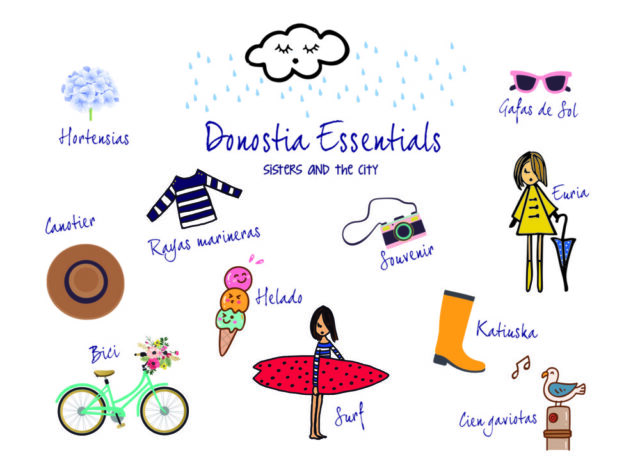 Donostia Essentials
SISTERS AND the CITY
Hortensias
Gafas de Sol
Canotier
Rayas marineras
Souvenir
Euria
Helado
Katiuska
Bici
Surf
Cien gaviotas